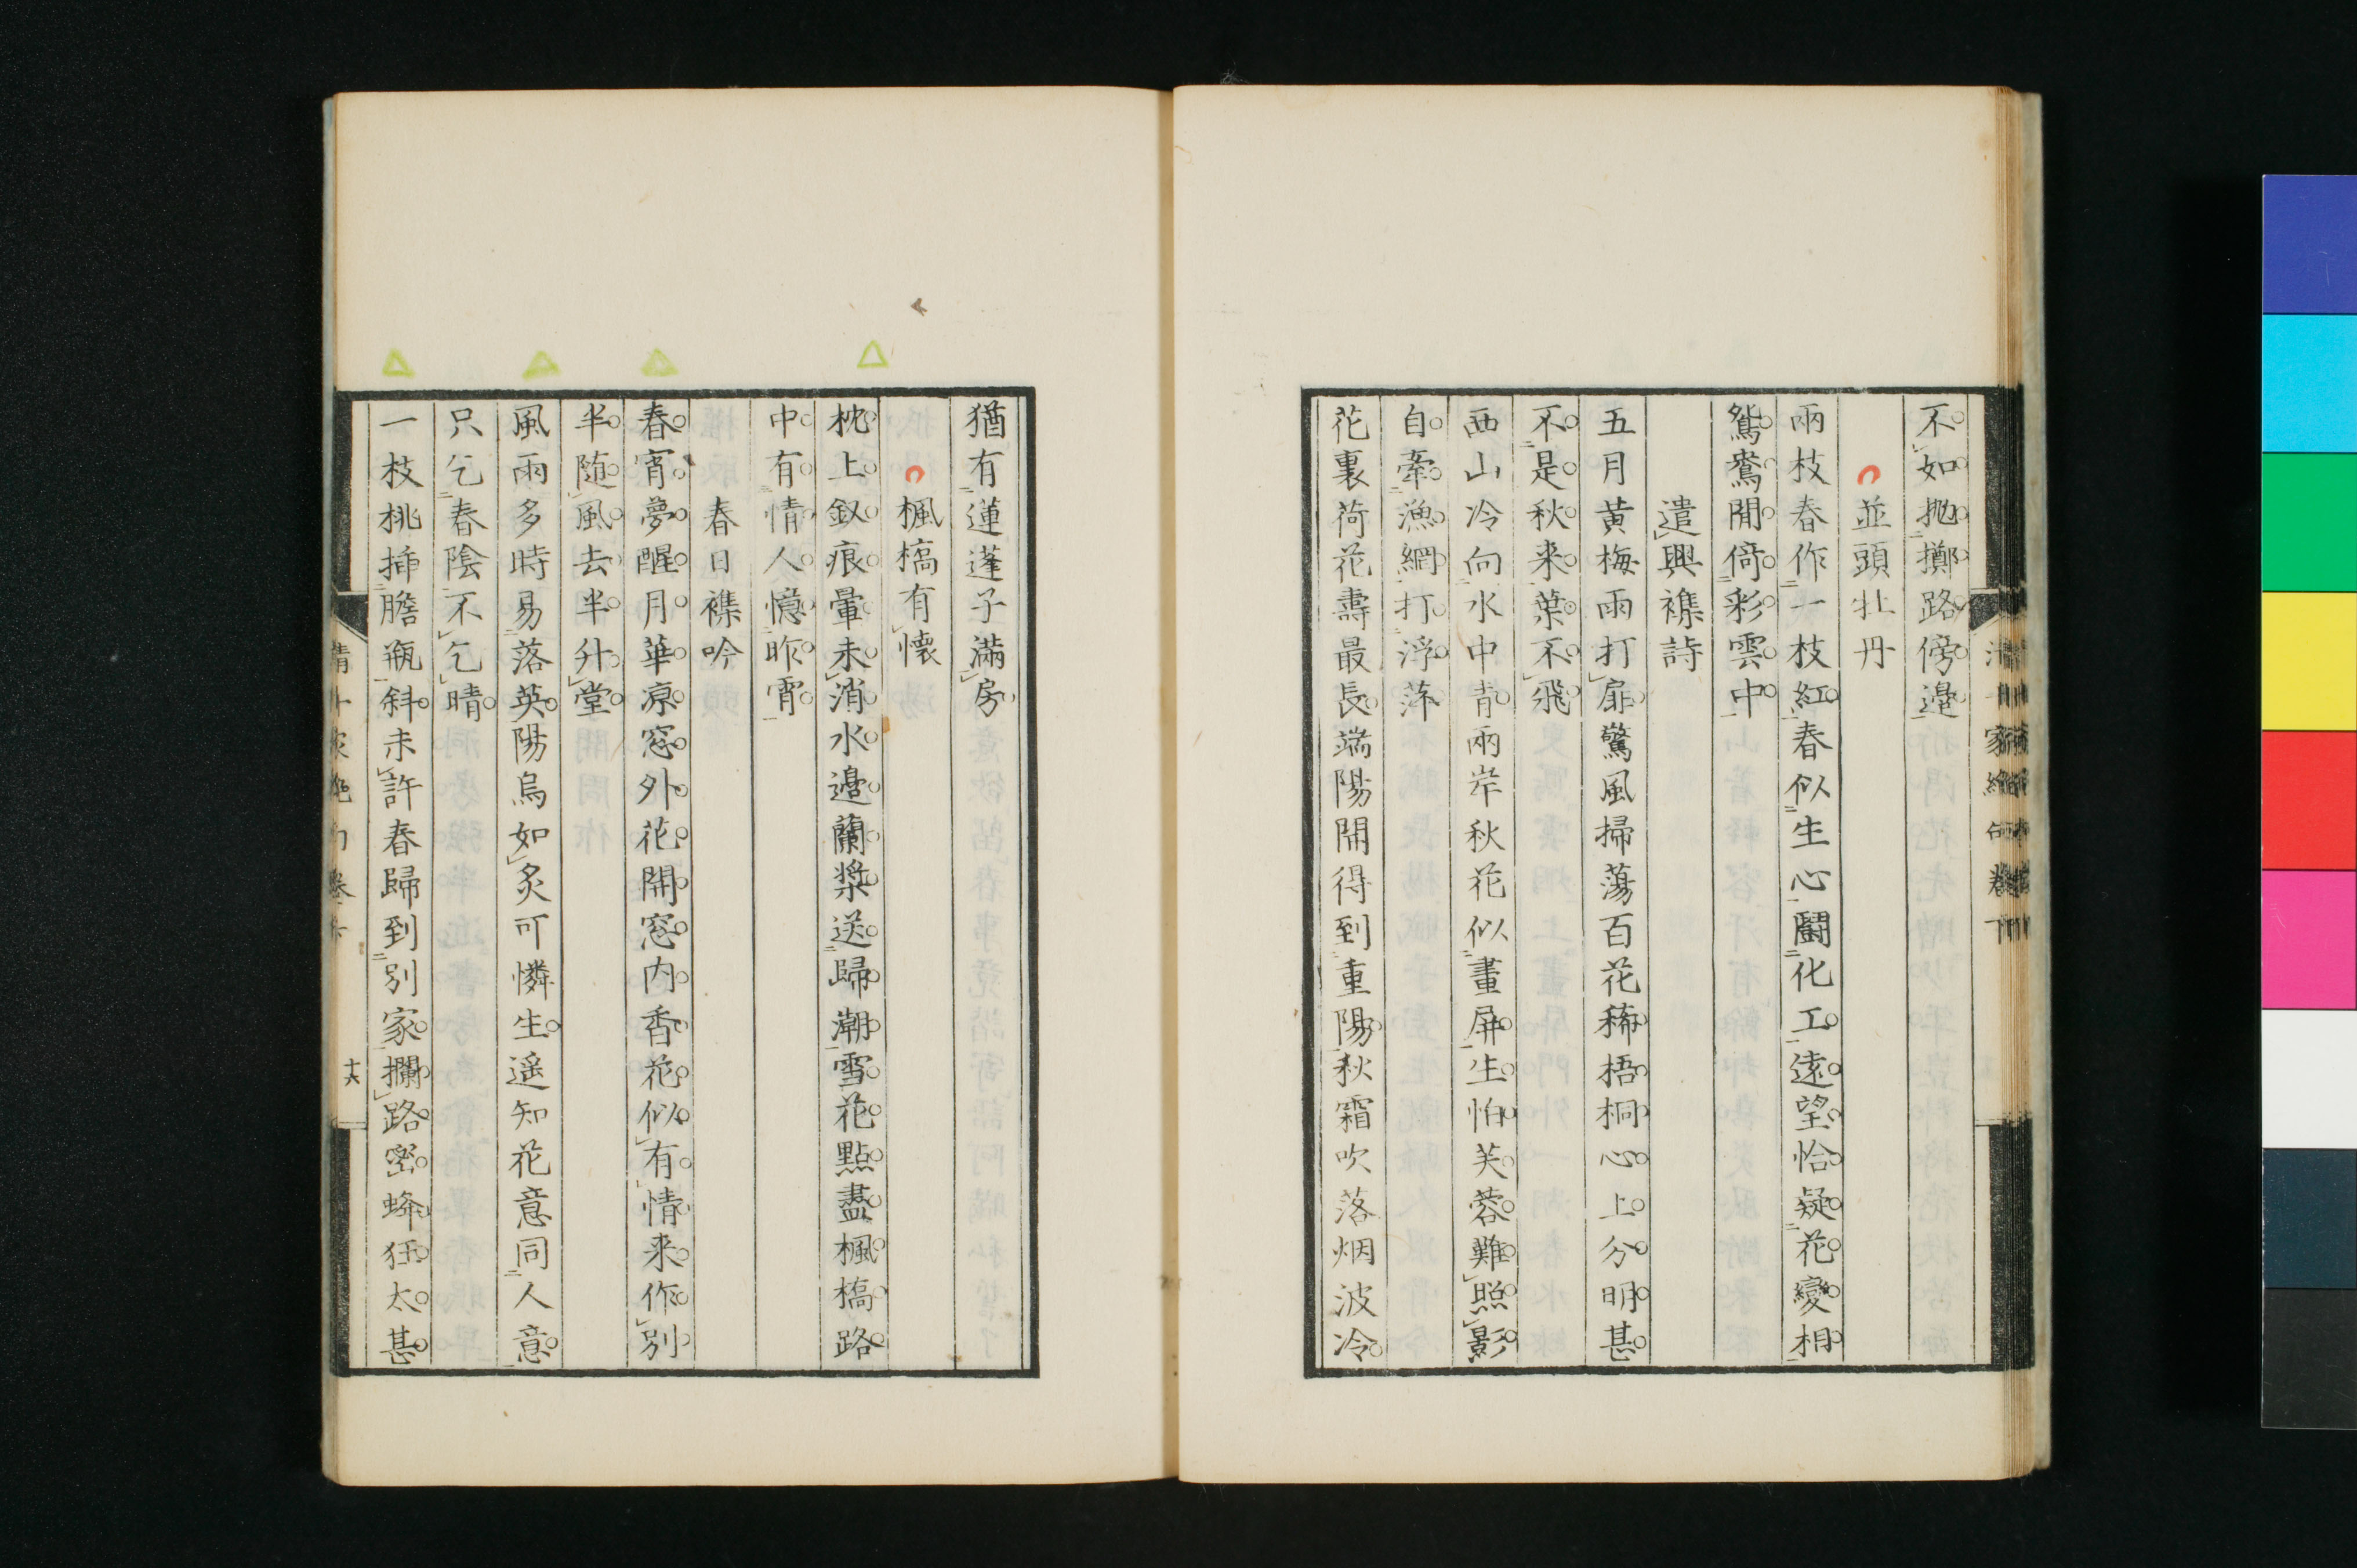 不如抛擲路傍邊
並頭牡丹
兩枝春作一枝紅春似生心鬪化工遠望恰疑花變相
鴛鴦閒倚彩雲中
遣興襍詩
五月黃梅雨打扉驚風掃蕩百花稀梧桐心上分明甚
不是秋来葉不飛
西山冷向水中青兩岸秋花似畫屏生怕芙蓉難照影
自牽漁網打浮萍
花裏荷花壽最長端陽開得到重陽秋霜吹落烟波冷
猶有蓮蓬子滿房
楓橋有懷
枕上釵痕暈未消水邊蘭槳送歸潮雪花點盡楓橋路
中有情人憶昨宵
春日襍吟
春宵夢醒月華凉窓外花開窓内香花似有情来作別
半随風去半升堂
風雨多時易落英陽烏如炙可憐生遥知花意同人意
只乞春陰不乞晴
一枝桃插膽瓶斜未許春歸到別家攔路蜜蜂狂太甚
清十家絶句卷
十六